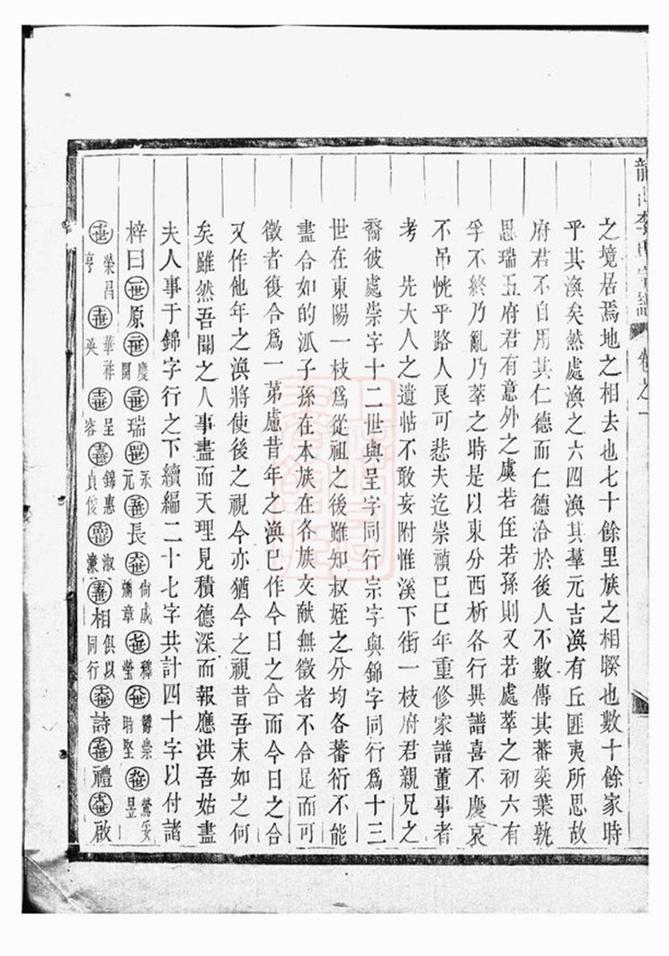 之境居焉地之相去也七十餘里族之相暌也數十餘家時
乎其渙矣然處渙之六四渙其羣元吉渙有丘匪夷所思故
府君不自用其仁德而仁德洽於後人不數傳其蕃奕葉孰
思瑞五府君有意外之虞若侄若孫則又若處萃之初六有
孚不終乃亂乃萃之時是以東分西析各行異譜喜不慶哀
不吊恍乎路人良可悲夫迄崇禎巳巳年重修家譜董事者
考　先大人之遺帖不敢妄附惟溪下街一枝府君親兄之
裔彼處崇字十二世與呈字同行宗字與錦字同行爲十三
世在東陽一枝爲從祖之後雖知叔姪之分均各蕃衍不能
盡合如的派子孫在本族在各族文献無徵者不合足而可
徵者復合爲一第慮昔年之渙巳作今日之合而今日之合
又作他年之渙將使後之視今亦猶今之視昔吾末如之何
矣雖然吾聞之人事盡而天理見積德深而報應洪吾姑盡
夫人事于錦字行之下續編二十七字共計四十字以付諸
梓曰原慶開瑞永元長尚成彌章穉瑩鬱崇時堅鶯妥昱
榮昌亨華祥英呈容錦惠貞俊淑濂相俱以同行詩禮啟